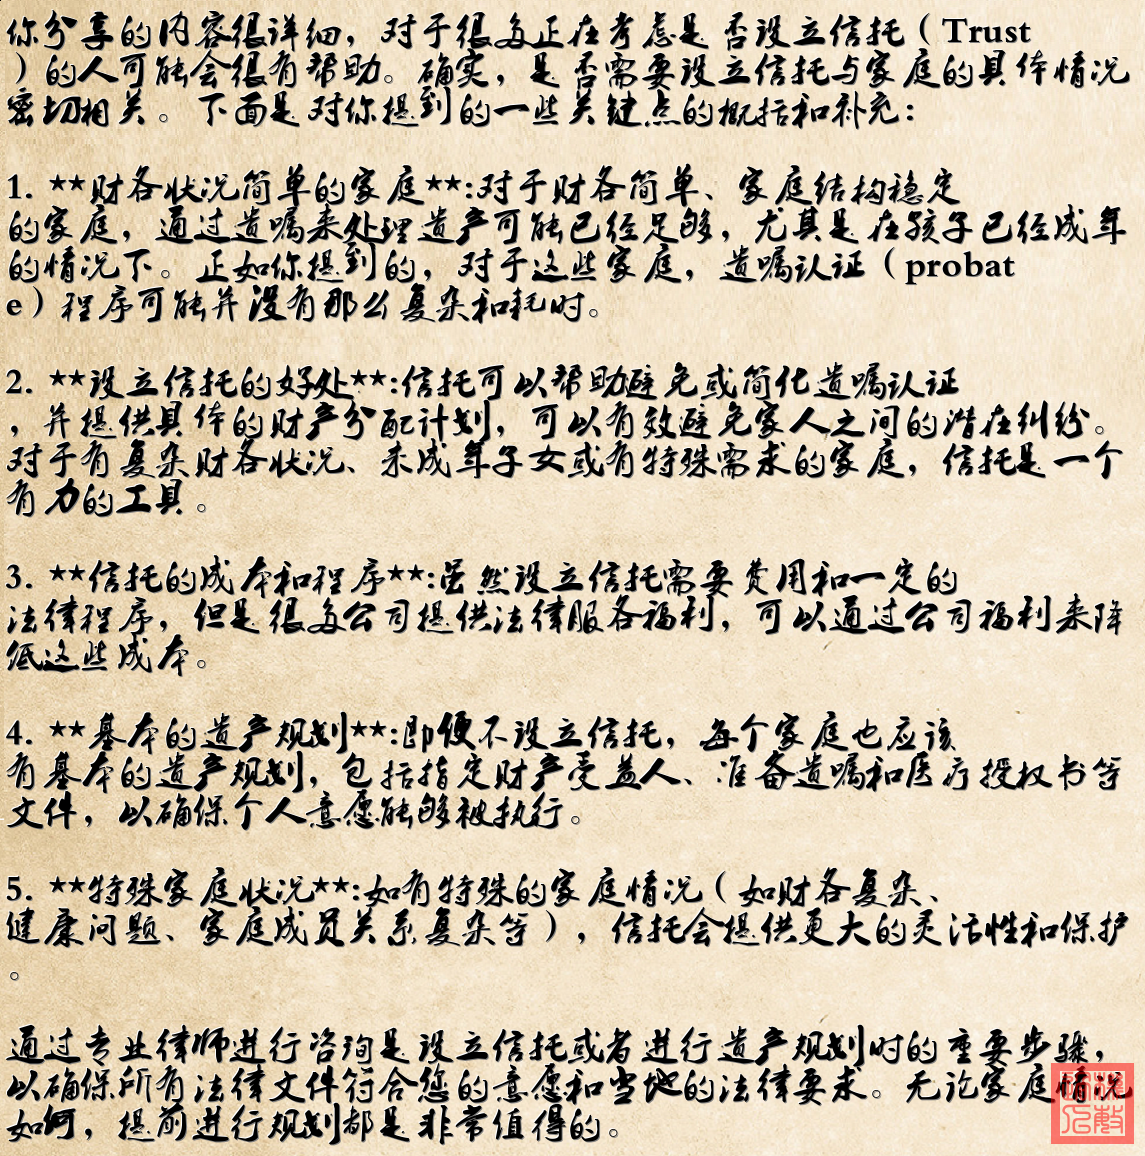 你分享的内容很详细，对于很多正在考虑是否设立信托（Trust
）的人可能会很有帮助。确实，是否需要设立信托与家庭的具体情况
密切相关。下面是对你提到的一些关键点的概括和补充：
1. **财务状况简单的家庭**:对于财务简单、家庭结构稳定
的家庭，通过遗嘱来处理遗产可能已经足够，尤其是在孩子已经成年
的情况下。正如你提到的，对于这些家庭，遗嘱认证（probat
e）程序可能并没有那么复杂和耗时。
2. **设立信托的好处**:信托可以帮助避免或简化遗嘱认证
，并提供具体的财产分配计划，可以有效避免家人之间的潜在纠纷。
对于有复杂财务状况、未成年子女或有特殊需求的家庭，信托是一个
有力的工具。
3. **信托的成本和程序**:虽然设立信托需要费用和一定的
法律程序，但是很多公司提供法律服务福利，可以通过公司福利来降
低这些成本。
4. **基本的遗产规划**:即便不设立信托，每个家庭也应该
有基本的遗产规划，包括指定财产受益人、准备遗嘱和医疗授权书等
文件，以确保个人意愿能够被执行。
5. **特殊家庭状况**:如有特殊的家庭情况（如财务复杂、
健康问题、家庭成员关系复杂等），信托会提供更大的灵活性和保护
。
通过专业律师进行咨询是设立信托或者进行遗产规划时的重要步骤，
以确保所有法律文件符合您的意愿和当地的法律要求。无论家庭情况
如何，提前进行规划都是非常值得的。